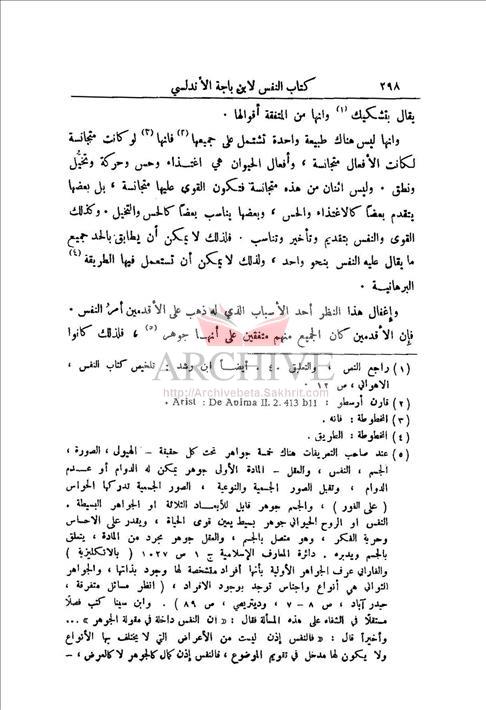 ٢٩٨ كتاب النفس لابن باجة الأندلسي
يقال بتشكيك (١) وانها من المتفقة أقوالها .
وانها ليس هناك طبيعة واحدة تشتمل على جميعها (٢) فانها (٣) لو كانت متجانسة
لكانت الأفعال متجانسة ، وأفعال الحيوان هي اغتذاء وحس وحركة وتخيُّل
ونطق . وليس اثنان من هذه متجانسة فتكون القوى عليها متجانسة ، بل بعضها
يتقدم بعضاً كالاغتذاء والحس ، وبعضها يناسب بعضاً كالحس والتخيل . وكذلك
القوى والنفس بتقديم وتأخير وتناسب . فلذلك لا يمكن أن يطابق بالحد جميع
ما يقال عليه النفس بنحو واحد ، ولذلك لا يمكن أن تستعمل فيها الطريقة (٤)
البرهانية .
وإغفال هذا النظر أحد الأسباب الذي له ذهب على الأقدمين أمرُ النفس .
فإن الأقدمين كان الجميع منهم متفقين على أنها جوهر (٥) ، فلذلك كانوا
(١) راجع النص ، والتعليق ٤٠ . أيضاً ابن رشد : تلخيص كتاب النفس ،
الاهواني ، ص ١٢ .
(٢) قارن أرسطو : Arist : De Anima II. 2. 413 b11 .
(٣) المخطوطة : فانه .
(٤) المخطوطة : الطريق .
(٥) عند صاحب التعريفات هناك خمسة جواهر تحت كل حقيقة – الهيولى ، الصورة ،
الجسم ، النفس ، والعقل – المادة الأولى جوهر يمكن له الدوام أو عدم
الدوام ، وتقبل الصور الجسمية والنوعية ، الصور الجسمية تدركها الحواس
( على الفور ) ، والجسم جوهر قابل للأبعاد الثلاثة او الجواهر البسيطة .
النفس او الروح الحيواني جوهر بسيط يعين قوى الحياة ، ويقدر على الاحساس
وحرية الفكر ، وهو متصل بالجسم ، والعقل جوهر مجرد من المادة ، يتعلق
بالجسم ويدبره . دائرة المعارف الإسلامية ج ١ ص ١٠٢٧ ( بالانكليزية )
والفارابي عرف الجواهر الأولية بأنها أفراد مشخصة لها وجود بذاتها ، والجواهر
الثواني هي أنواع واجناس توجد بوجود الافراد ، ( انظر مسائل متفرقة ،
حيدرآباد ، ص ٨ – ٧ ، وديتريصي ، ص ٨٩ ) . وابن سينا كتب فصلًا
مستقلًا في الشفاء على هذه المسألة فقال : « ان النفس داخلة في مقولة الجوهر » ...
وأخيراً قال : « فالنفس إذن ليست من الأعراض التي لا يختلف بها الأنواع
ولا يكون لها مدخل في تقويم الموضوع ، فالنفس إذن كمال كالجوهر لا كالعرض ، –
ARCHIVE
http://Archivebeta.Sakhrit.com